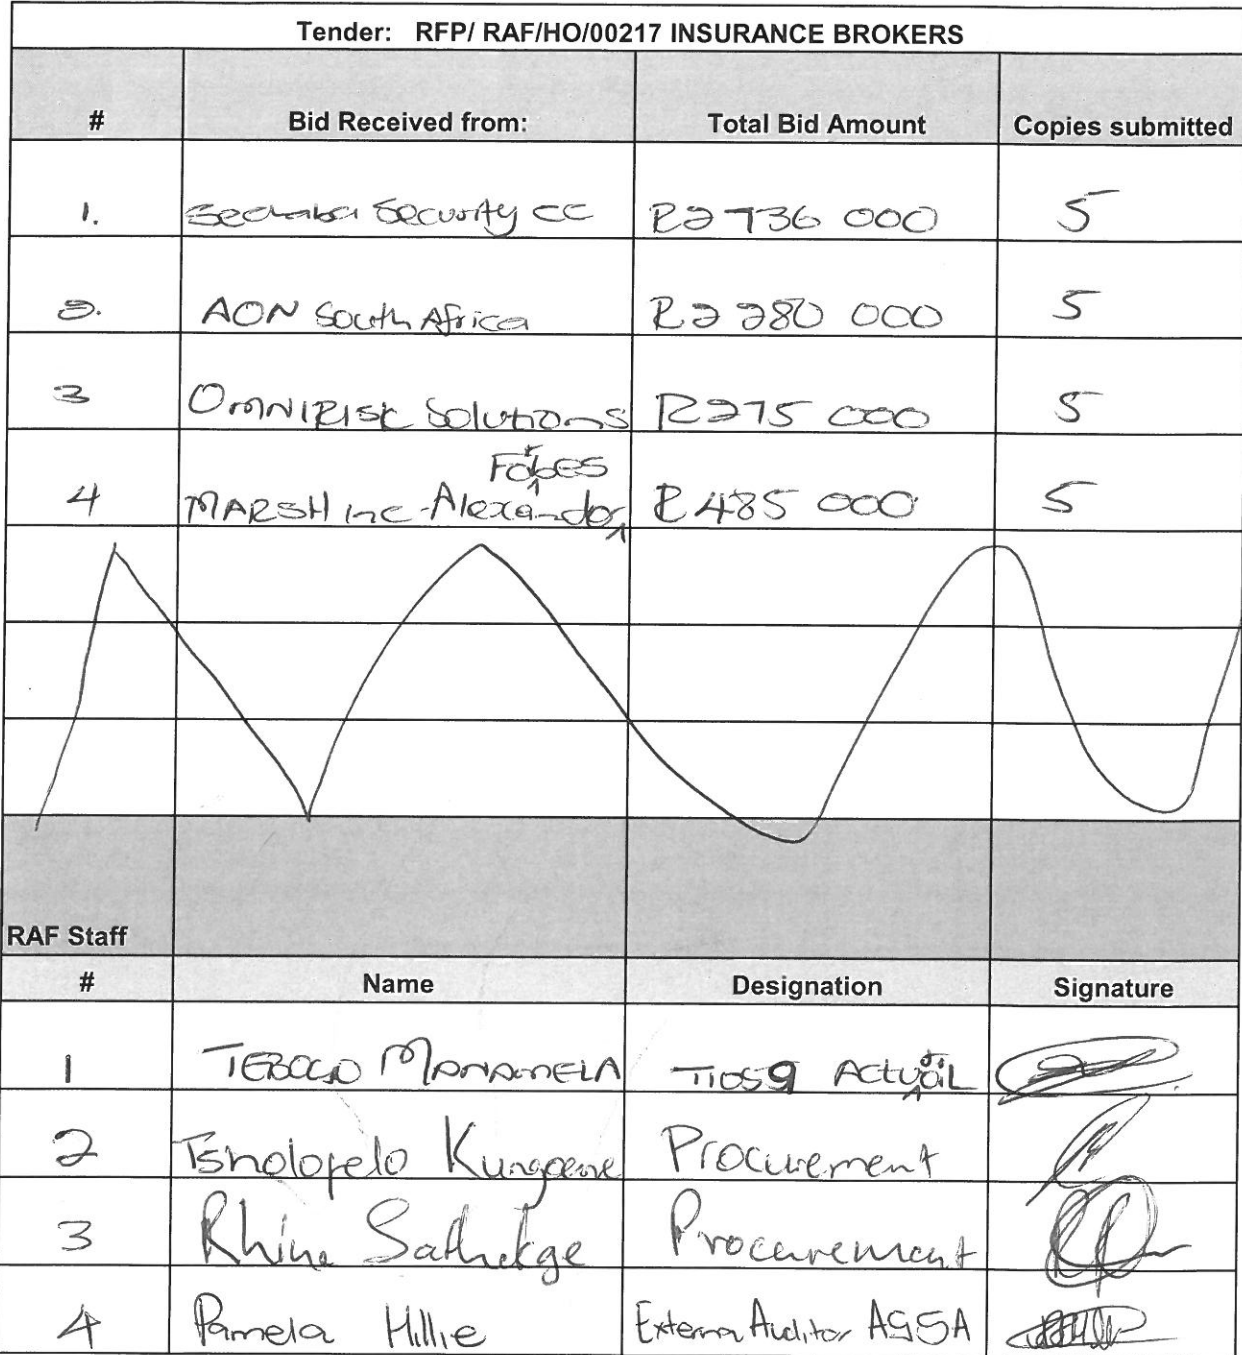 Tender: RFP/ RAF/HO/00217 INSURANCE BROKERS
# Bid Received from: Total Bid Amount Copies submitted
1. Sechaba Security CC R2 736 000 5
2. AON South Africa R2 280 000 5
3 OMNIRISK Solutions R275 000 5
Forbes
4 MARSH inc Alexander R485 000 5
RAF Staff
# Name Designation Signature
1 TEBOGO MANAMELA
2 Tsholofelo Procurement
3 Rhine Sathekge Procurement
4 Pamela Hillie External Auditor AGSA